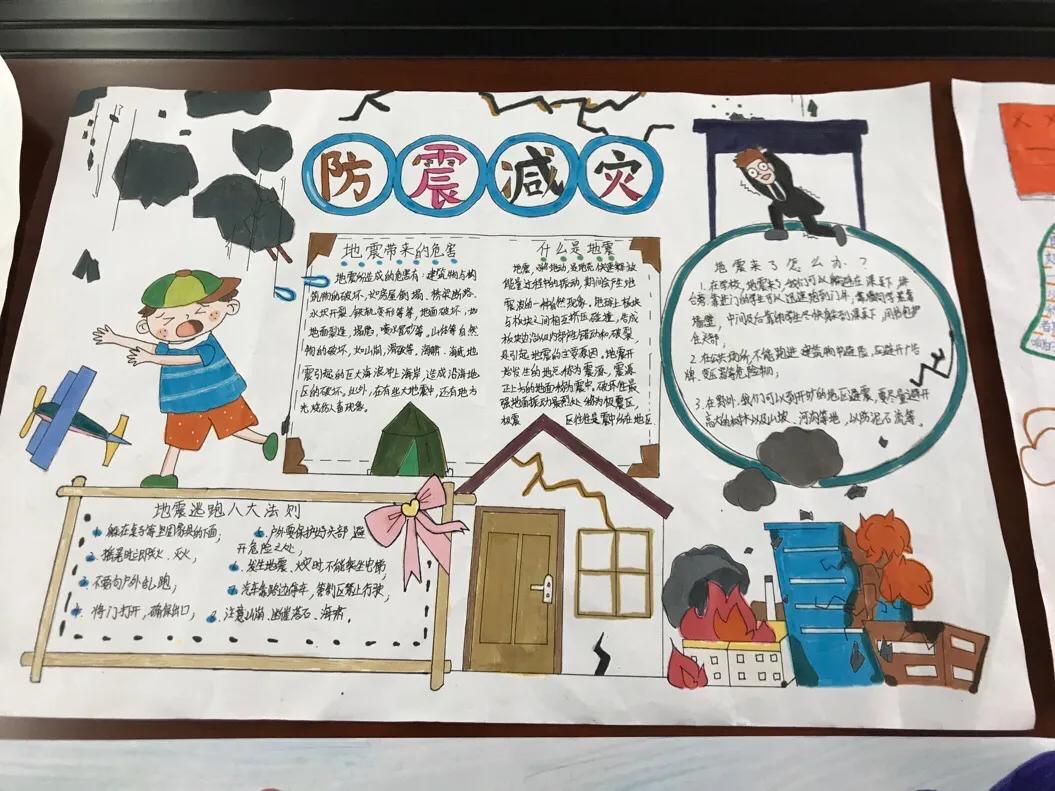 防震减灾
地震带来的危害
地震所造成的危害有:建筑物与构
筑物的破坏,如房屋倒塌、桥梁断落、
水坝开裂、铁轨变形等等,地面破坏,如
地面裂缝、塌陷,喷水冒砂等,山体等自然
物的破坏,如山崩,滑坡等,海啸、海底地
震引起的巨大海浪冲上海岸,造成沿海地
区的破坏。此外,在有些大地震中,还有地为
光烧伤人畜现象。
什么是地震
地震,又称地动,是地壳快速释放
能量过程中的振动,期间会产生地
震波的一种自然现象。地球上板块
与板块之间相互挤压碰撞,造成
板块边沿以及内部产生错动和破裂,
是引起地震的主要原因,地震开
始发生的地点称为震源,震源
正上方的地面称为震中。破坏性
强地面振动最烈处称为极震区,
极震区往往是震中所在地区
地震来了怎么办?
1.在学校,地震来了,我们可以躲避在课桌下,讲
台旁,靠近门的学生可以迅速跑到门外,靠
墙壁,中间及后靠的学生尽快躲到课桌下,用书包护
住头部;
2.在公共场所,不能跑进建筑物中避险,要避开广告
牌、变压器等危险物;
3.在野外,我们可以到开阔的地区避震,要尽量避开
高大的树木以及山坡、河沟等地,以防泥石流等。
地震逃跑八大法则
1.躲在桌子等坚固家具的下面;
2.摇晃时立即关火、灭火;
3.不要向户外乱跑;
4.将门打开,确保出口;
5.户外要保护好头部,避
开危险之处;
6.发生地震、火灾时不能乘坐电梯;
7.汽车靠路边停车,管制区禁止行驶;
8.注意山崩、断崖落石、海啸。